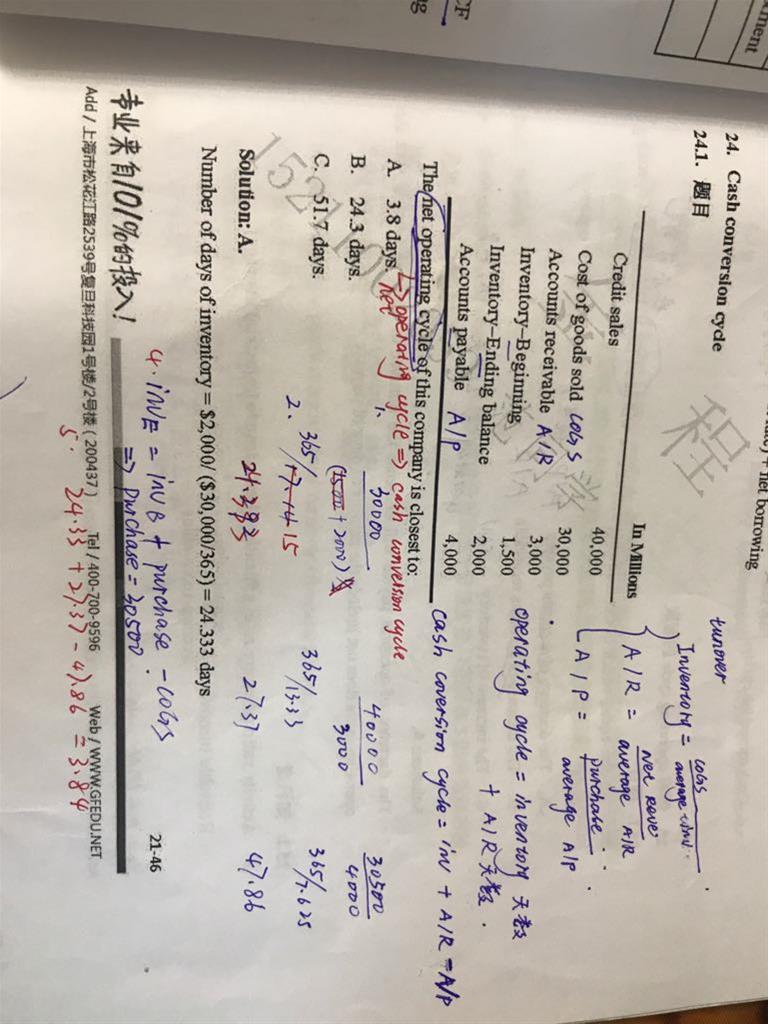 24. Cash conversion cycle
24.1. 题目
In Millions
Credit sales 40,000
Cost of goods sold cogs 30,000
Accounts receivable A/R 3,000
Inventory–Beginning 1,500
Inventory–Ending balance 2,000
Accounts payable A/P 4,000
The net operating cycle of this company is closest to:
A. 3.8 days.
B. 24.3 days.
C. 51.7 days.
Solution: A.
Number of days of inventory = $2,000/ ($30,000/365) = 24.333 days
turnover
Inventory = cogs
A/R = net
average A/R
A/P = purchase
average A/P
operating cycle = inventory 天数
+ A/R 天数.
cash coversion cycle = inv + A/R - A/P
net operating cycle => cash conversion cycle
1. 30000
+ 2000)
40000
3000
30500
4000
2. 365/
15
365/13.33
365/7.625
27.37
47.86
4. invE = invB + purchase - cogs
=> purchase = 30500
5. 24.33 + 27.37 - 47.86 = 3.84
专业来自101%的投入!
21-46
Add / 上海市松花江路2539号复旦科技园1号楼/2号楼 (200437) Tel / 400-700-9596 Web / WWW.GFEDU.NET
net borrowing
程